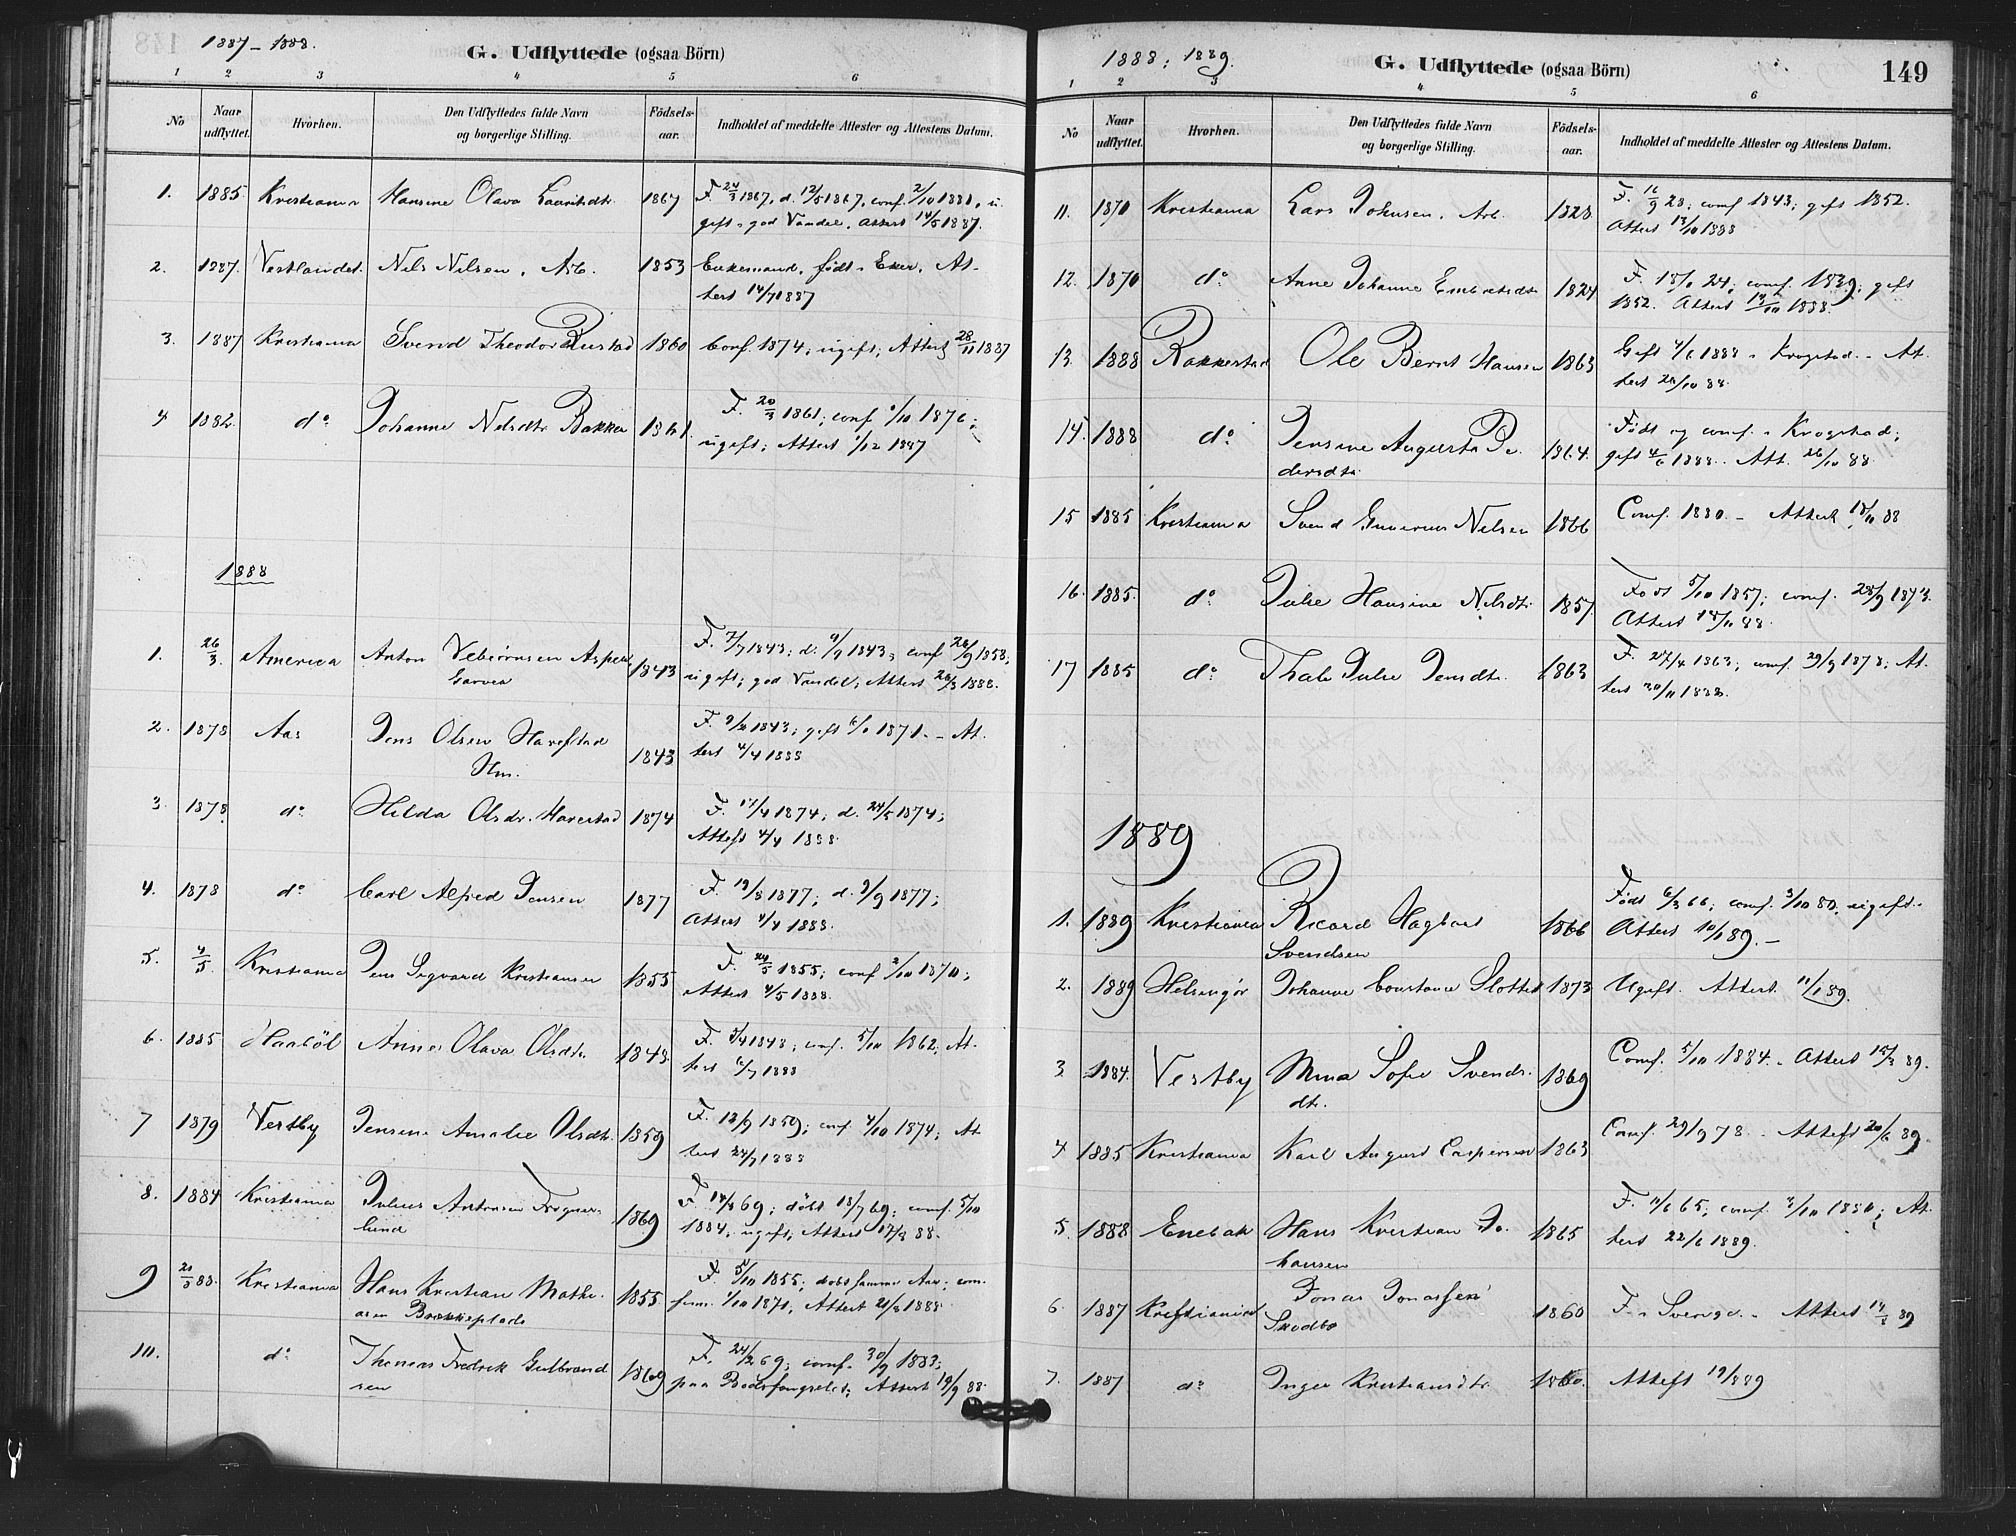 1887 - 1888.
G. Udflyttede (ogsaa Börn)
1 2 3 4 5 6
No
Naar udflyttet.
Hvorhen.
Den Udflyttedes fulde Navn og borgerlige Stilling.
Födsels-aar.
Indholdet af meddelte Attester og Attestens Datum.
1. 1885 Kristiania Hansine Olava Lauritsdtr 1867 F. 24/3 1867, d. 12/5 1867, conf. 2/10 1881, u
gift, god Vandel. Attest 14/5 1887.
2. 1887. Vestlandet. Nils Nilsen, Arb. 1853 Enkemand, født i Eker, At-
test 14/7 1887
3. 1887 Kristiania Svend Theodor Rustad 1860 Conf. 1874; ugift; Attest 28/11 1887
4 1882. do Johanne Nilsdtr Bakken 1861. F. 20/3 1861; conf. 1/10 1876;
ugift; Attest 1/12 1887
1888
1. 26/3. America Anton Vebiørnsen Aspe 1843 F. 7/7 1843; d. 9/9 1843; conf 26/9 1858;
ugift; god Vandel; Attest 26/3 1888.
2. 1878 Aas Jens Olsen Havestad 1843 F. 9/10 1843; gift 1871. - At-
Hm. test 4/4 1888
3. 1878 do Hilda Olsdr. Haverstad 1874 F. 17/4 1874; d. 24/5 1874;
Attest 4/4 1888
4. 1878 do Carl Alfred Jensen 1877 F. 19/8 1877; d. 9/9 1877;
Attest 4/4 1888.
5. 4/5. Kristiania Jens Sigvard Kristiansen 1855 F. 24/5 1855; conf 2/10 1870;
Attest 4/5 1888.
6. 1885 Haabøl Anne Olava Olsdtr. 1848 F. 3/4 1848; conf. 5/10 1862; At-
test 6/7 1888
7 1879 Vestby Jensine Amalie Olsdtr. 1859 F. 12/9 1859; conf. 4/10 1874; At
test 24/7 1888
8. 1884 Kristiania Julius Antonsen Frogner- 1869 F. 14/6 69; döbt 18/7 69; conf. 5/10
lund 1884; ugift; Attest 17/8 88.
9 21/8 88. Kristiania Hans Kristian Mathi- 1855 F. 5/10 1855; døbt samme Aar; con-
asen Brække­plads firm. 1/10 1871, Attest 21/8 1888
10. do Thomas Fredrik Gulbrand 1869 F. 24/2 69; conf. 30/9 1883;
sen paa Bodsfængselet; Attest 19/9 88
1888; 1889.
G. Udflyttede (ogsaa Börn)
149
1 2 3 4 5 6
No
Naar udflyttet.
Hvorhen.
Den Udflyttedes fulde Navn og borgerlige Stilling.
Födsels-aar.
Indholdet af meddelte Attester og Attestens Datum.
11. 1870 Kristiania Lars Johnsen. Arb. 1828 F. 16/9 28; conf 1843; gift 1852.
Attest 13/10 1888
12. 1870 do Anne Johanne Embretsdtr 1824 F. 24; conf. 1839; gift
1852. Attest 13/10 1888.
13. 1888 Rakkestad Ole Bernt Hansen 1863 Gift 4/6 1888 i Krogstad. - At-
test 26/10 88.
14. 1888 do Jensine Augusta Pe 1864. Født og conf. i Krogstad;
dersdtr gift 4/6 1888. Att. 26/10 88
15 1885 Kristiania Svend Gunerius Nilsen 1866 Conf. 1880. - Attest 18/11 88
16. 1885. do Julie Hansine Nilsdtr 1857 Født 5/10 1857; conf. 28/9 1873.
Attest 18/11 88.
17 1885 do Thale Julie Jensdtr. 1863 F. 27/4 1863; conf. 29/9 1878; At-
test 30/11 1888.
1889
1. 1889 Kristiania Ricard Hagbart 1866 Født 6/3 66; conf. 3/10 80, ugift.
Svendsen Attest 10/1 89. -
2. 1889 Helsingör Johanne Constance Slottet 1873 Ugift. Attest. 11/1 89.
3. 1884. Vestby Mina Sofie Svends- 1869 Conf. 5/10 1884. - Attest 15/3 89.
dtr.
4 1885 Kristiania Karl August Caspersen 1863 Conf. 29/9 78. - Attest 20/6 89.
5. 1888 Enebak Hans Kristian Jo- 1865 F. 11/6 65; conf. 3/10 1880; At-
hansen test 22/6 1889.
6. 1887 Kristiania Jonas Jonassen 1860 F. i Sverige. - Attest 14/8 89
Skodbo
7. 1887 do Inger Kristiansdtr. 1860. Attest 19/8 89